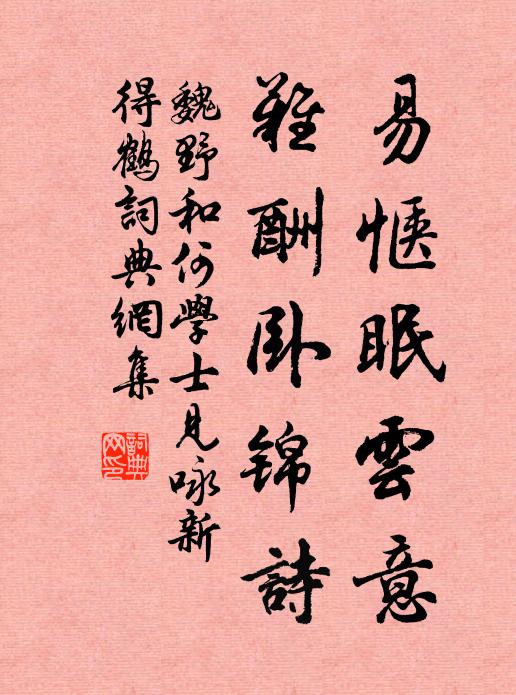 易惬眠雲意
難酬卧锦詩
魏野和何學士見咏新
得鶴詞典網集
詞典
网印